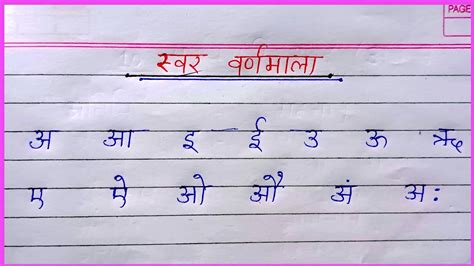 PAGE
स्वर वर्णमाला
अ आ इ ई उ ऊ ऋ
ए ऐ ओ औ अं अः